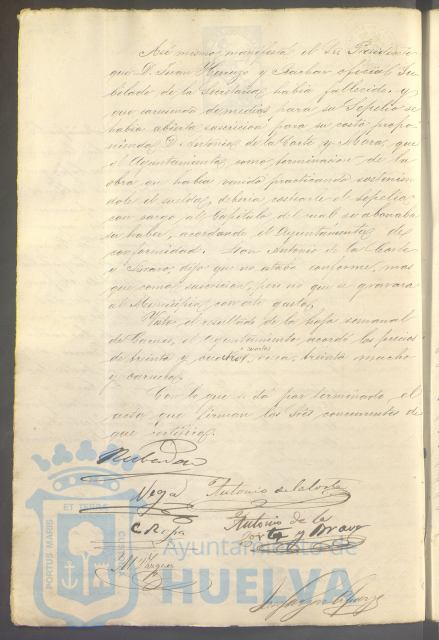 Asi mismo, manifestó el Sr. Presidente
que D. Juan y Bachar oficial Ju-
bilado de la Secretaria, habia fallecido, y
que careciendo de medios para su Sepelio se
habia abierto suscricion para su costo, propo-
niendo, D. Antonio de la Corte y Mora, que
el Ayuntamiento, como terminacion de la
obra que habia venido practicando sostenien-
dole el sueldo, deberia costearle el sepelio
con cargo, al Capitulo del cual se abonaba
su haber, acordando el Ayuntamiento de
conformidad. Don Antonio de la Corte
y Bravo, dijo que no estaba conforme, mas
que como suscricion, pero no que se gravara
al Municipio, con este gasto.
Visto, el resultado de la hoja semanal
de Carnes, el Ayuntamiento acordó los precios
de treinta y cuatro cuartos vaca, treinta macho
y carnero.
Con lo que se dá por terminado, el
acta que firman los Sres concurrentes de
que certifico.
Vega Antonio de la Corte
Antonio de la
Corte y Bravo
M. Vazquez
PORTUS MARIS
ET TERRAE
Ayuntamiento de
HUELVA